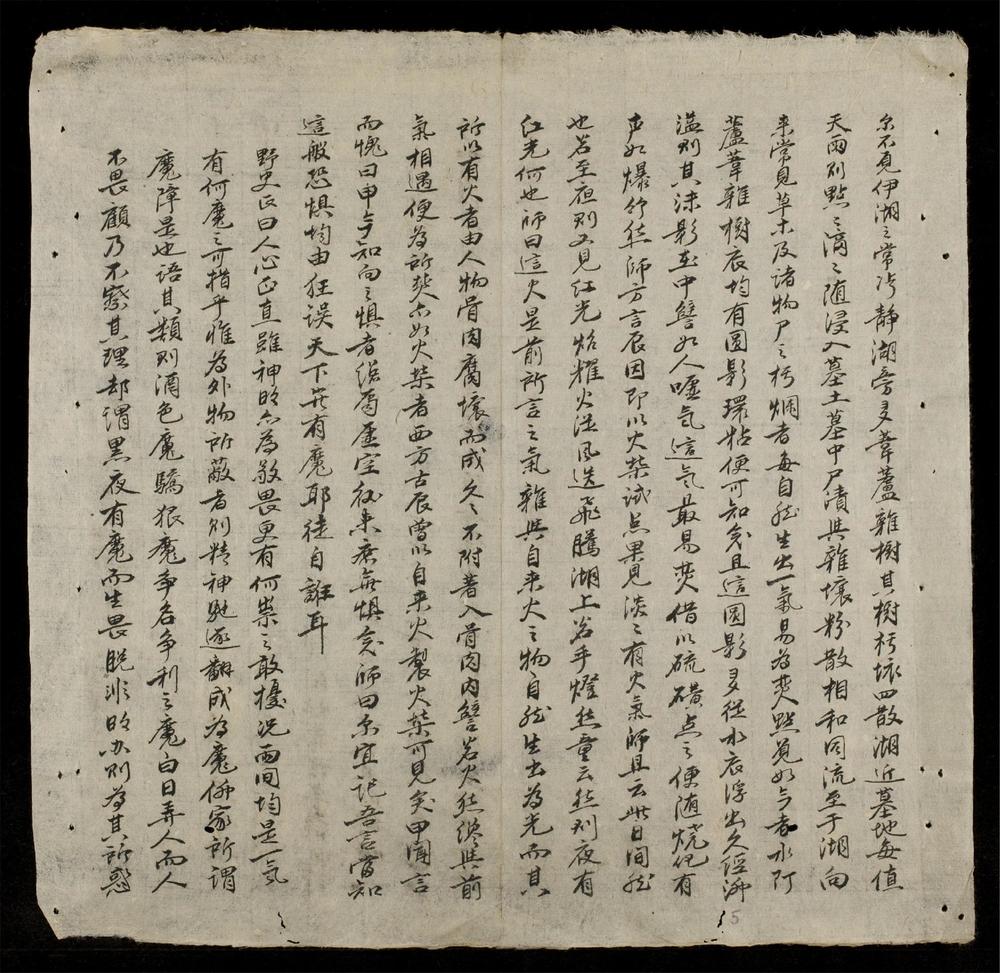 尔不見伊湖之常污靜湖旁多葦蘆雜樹其樹朽壞四散湖近墓地每值
天雨則點之滴之随浸入墓土墓中尸漬與雜壤粉散相和同流至于湖向
来常見草木及諸物尸之朽爛者每自然生出一氣易為熒點覓如今者水附
蘆葦雜樹衣均有圓影環粘便可知矣且這圓影多從水衣浮出久經沛
溢則其沫影在中譬如人噓气這气最易熒借以硫磺点之便随燒化有
声如爆竹然師方言辰因即以火柴試点果見淡之有火氣師且云此日間然
也若至夜則又見红光炤耀火逆風送飛騰湖上若手燈然童云然則夜有
红光何也師曰這火是前所言之气雜與自来火之物自然生出為光而其
所以有火者由人物骨肉腐壞而成久之不附著入骨肉内譬若火然纔與前
氣相遇便為所熒亦如火柴者西方古辰曽以自来火製火柴可見矣甲聞言
而愧曰申今知向之惧者縂屬虛空紗来庶無惧矣師曰尔宜記吾言當知
這般恐惧均由狂误天下豈有魔耶徒自誰耳
野史氏曰人心正直雖神明亦為敬畏更有何祟之敢擾况两间均是一氣
有何魔之可指乎惟為外物所蔽者則精神馳逐翻成為魔佛家所謂
魔障是也語其類則酒色魔驕狠魔争名争利之魔白日弄人而人
不畏顧乃不察其理却謂黑夜有魔而生畏脱非明办則為其所惑